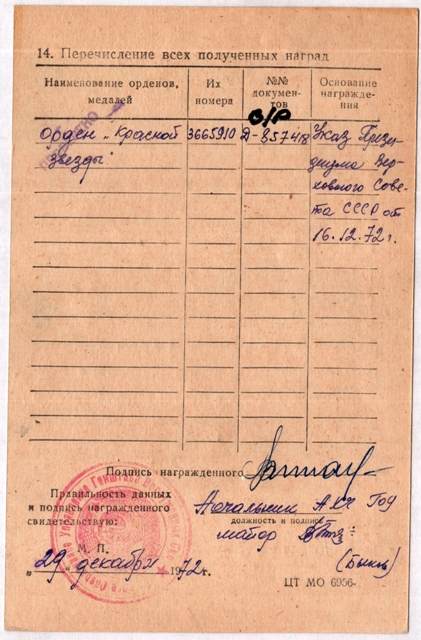 14. Перечисление всех полученных наград
Наименование орденов, медалей
Их номера
№№ документов
Основание награждения
О/Р
Орден „Красной Звезды"
3665910
Д-857418
Указ Прези-
диума Вер-
ховного Сове-
та СССР от
16.12.72 г.
Подпись награжденного
Правильность данных
и подпись награжденного
свидетельствую:
Начальник АХЧ ГОУ
должность и подпись
майор
(Быков)
М. П.
„29" декабря 1972 г.
ЦТ МО 6956-